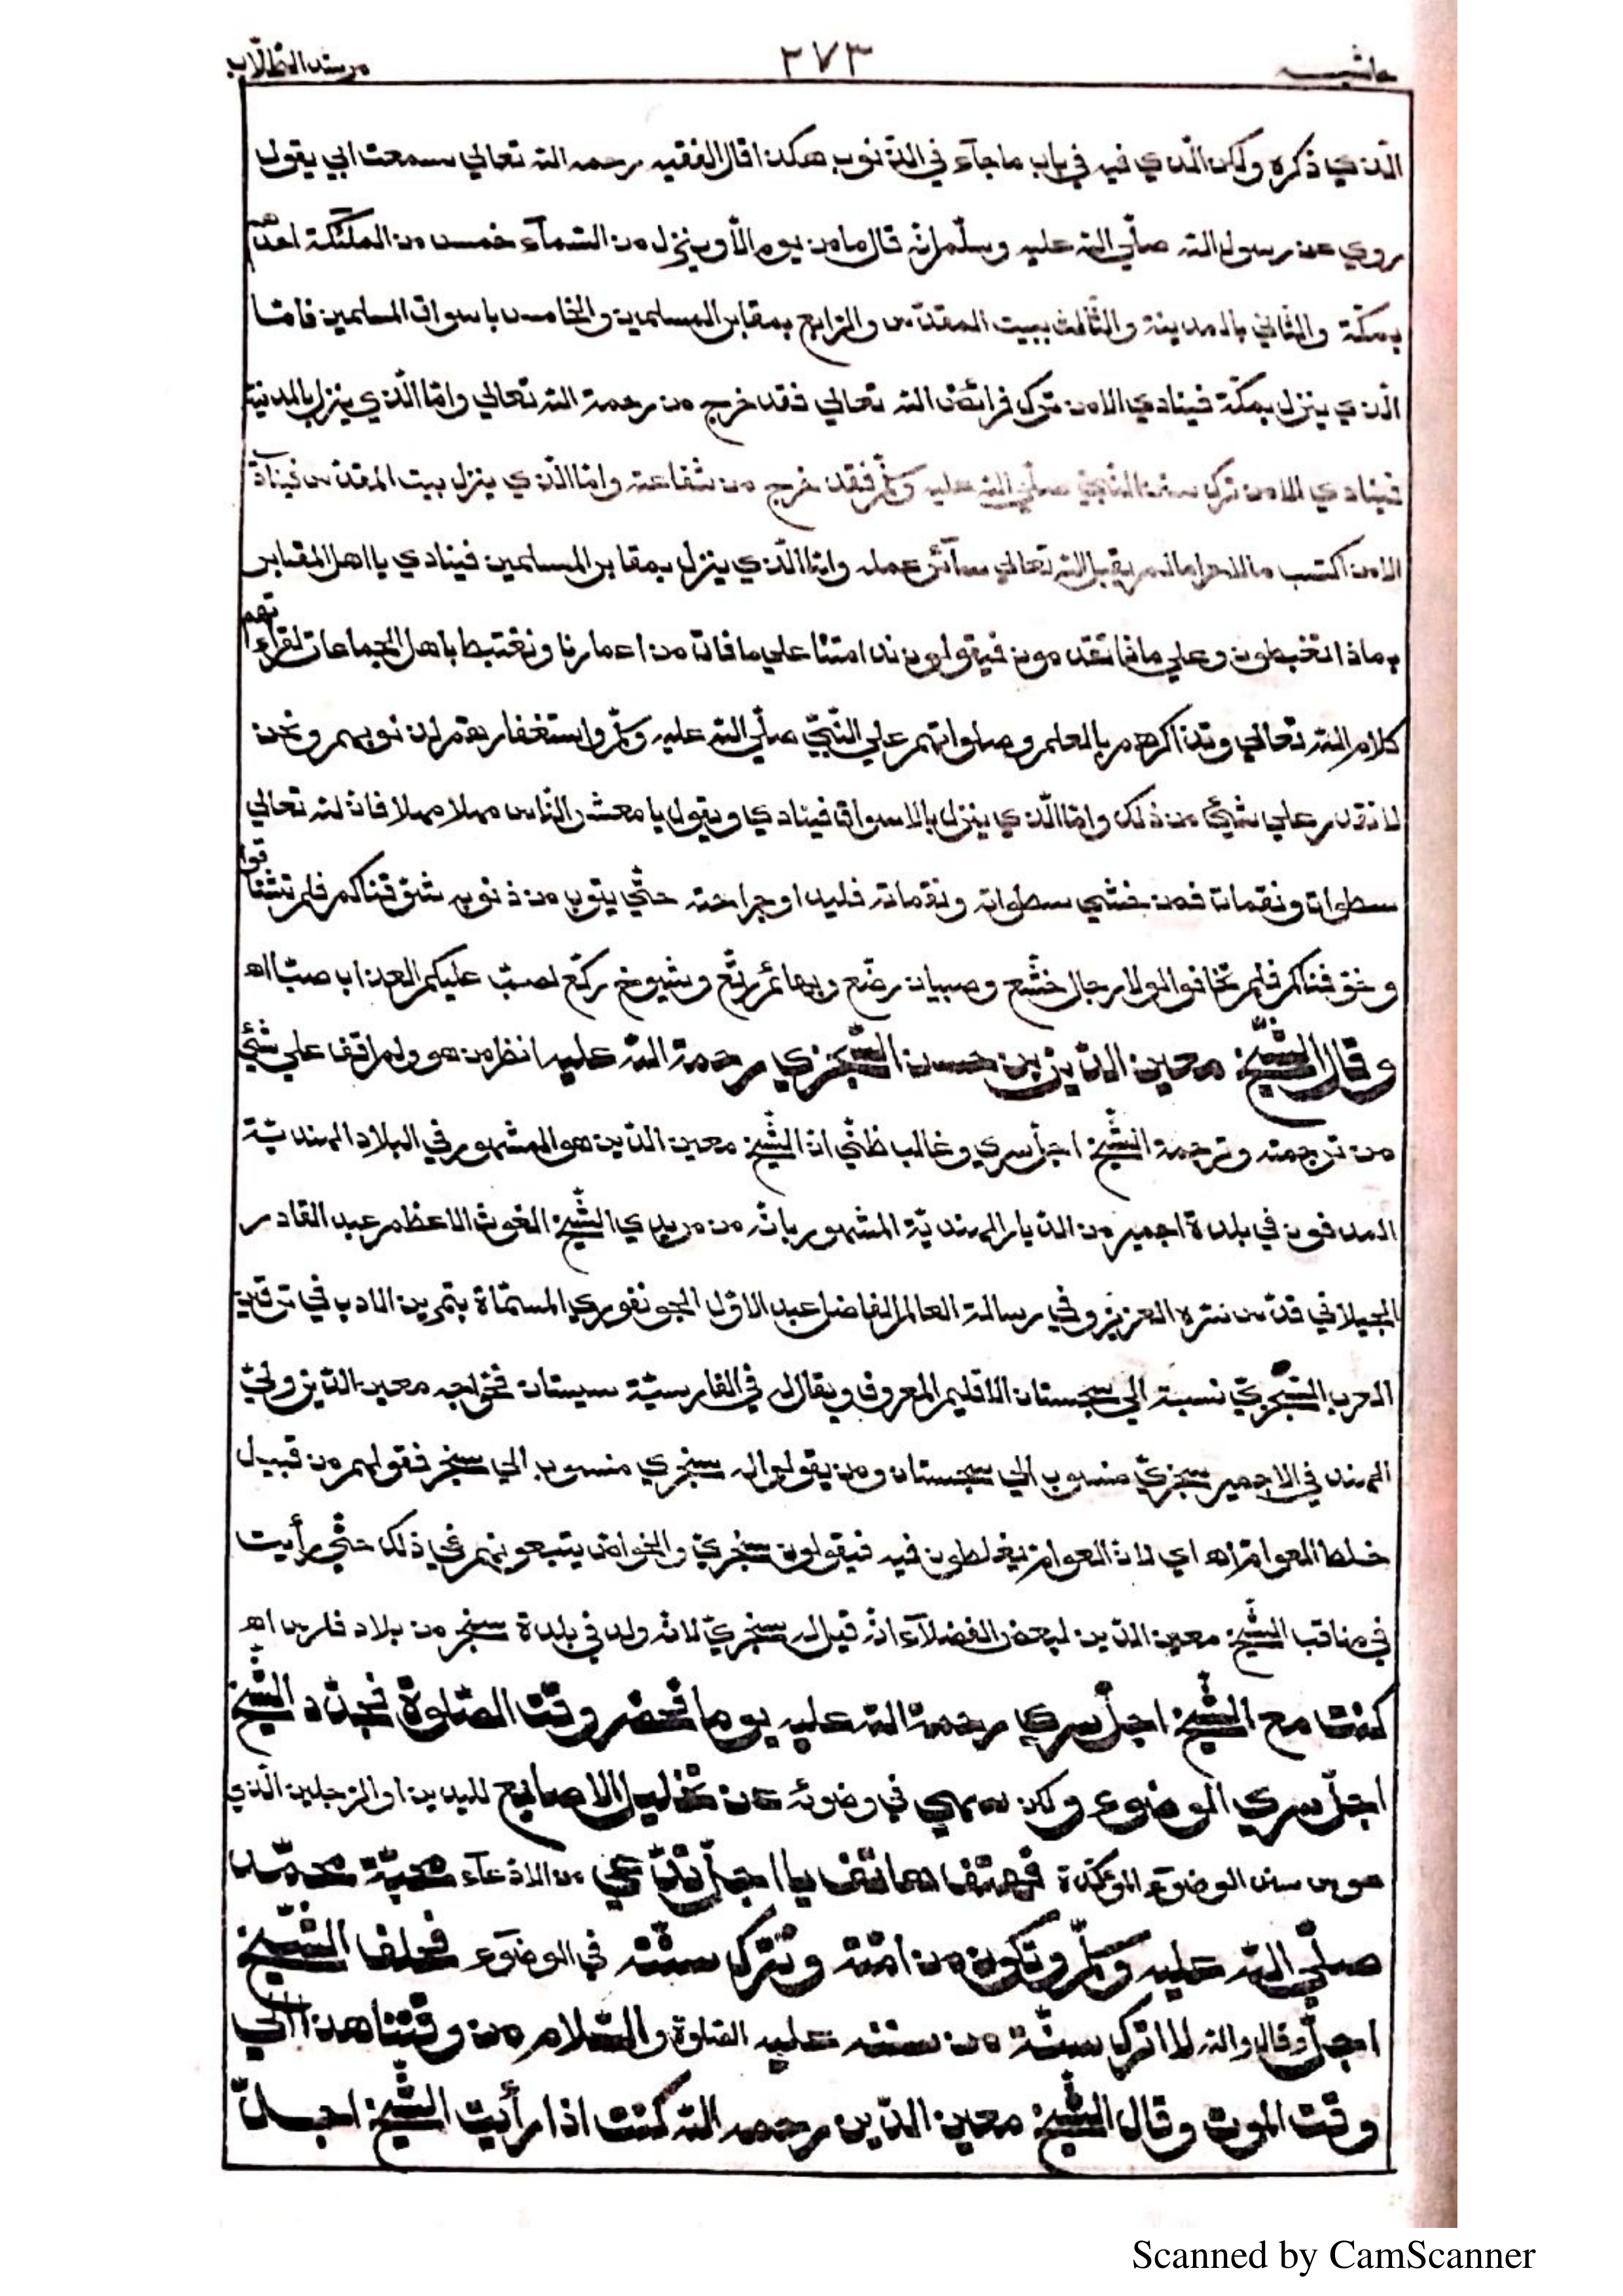 حاشيه ٢٧٣ مرشد الطلّاب
الّذي ذكره ولكن الّذي فيه في باب ما جآء في الذّنوب هكذا قال الفقيه رحمه الله تعالي سمعت ابي يقول
روي عن رسول الله صلّي الله عليه وسلّم انّه قال ما من يوم الّا وينزل من السّمآء خمس من الملٓئكة احدهم
بمكّة والثاني بالمدينة والثّالث ببيت المقدّس والرّابع بمقابر المسلمين والخامس باسواق المسلمين فامّا
الّذي ينزل بمكّة فينادي الا من ترك فرائض الله تعالي فقد خرج من رحمة الله تعالي وامّا الّذي ينزل بالمدينة
فينادي الا من ترك سنّة النّبيّ صلّي الله عليه وسلّم فقد خرج من شفاعته وامّا الّذي ينزل ببيت المقدّس فينادي
الا من اكتسب مالا حراما لم يقبل الله تعالي سآئر عمله وامّا الّذي ينزل بمقابر المسلمين فينادي يا اهل المقابر
بماذا تغبطون وعلي ما ذا تقدمون فيقولون ندامتنا علي ما فات من اعمارنا ونغتبط باهل الجماعات لقراءتهم
كلام الله تعالي وتذاكرهم بالعلم وصلواتهم علي النّبيّ صلّي الله عليه وسلّم واستغفارهم لذنوبهم ونحن
لا نقدر علي شئي من ذلك وامّا الّذي ينزل بالاسواق فينادي ويقول يا معشر النّاس مهلا مهلا فانّ لله تعالي
سطوات ونقمات فمن خشي سطواته ونقماته فليداو جراحته حتّي يتوب من ذنوبه شوّقناكم فلم تشتاقوا
وخوّفناكم فلم تخافوا لولا رجال خشّع وصبيان رضّع وبهائم رتّع وشيوخ ركّع لصبّ عليكم العذاب صبّا اه
وقال الشّيخ معين الدّين بن حسن السّجزي رحمة الله عليه انظر من هو ولم اقف علي شئي
من ترجمته وترجمة الشّيخ اجلّ سري وغالب ظنّي انّ الشّيخ معين الدّين هو المشهور في البلاد الهنديّة
المدفون في بلدة اجمير من الدّيار الهنديّة المشهور بانّه من مريدي الشّيخ الغوث الاعظم عبد القادر
الجيلاني قدّس سرّه العزيز وفي رسالة العالم الفاضل عبد الاوّل الجونفوري المسمّاة بتمرين الادب في
العرب السّجزيّ نسبة الي سجستان الاقليم المعروف ويقال له في الفارسيّة سيستان فخواجه معين الدّين وليّ
الهند في الاجمير سجزيّ منسوب الي سجستان ومن يقولوا له سنجري منسوب الي سنجر فقولهم من قبيل
خلط العوام اه اي لانّ العوام يغلطون فيه فيقولون سنجريّ والخواصّ يتبعونهم في ذلك حتّي رأيت
في مناقب الشّيخ معين الدّين لبعض الفضلآء انّه قيل له سنجريّ لانّه ولد في بلدة سنجر من بلاد فارس اه
كنت مع الشّيخ اجلّ سري رحمة الله عليه يوما فحضر وقت الصّلوة فجدّد الشّيخ
اجلّ سري الوضوء ولكن سهي في وضوئه عن تخليل الاصابع لليدين او الرّجلين الّذي
هو من سنن الوضوٓء المؤكّدة فهتف هاتف يا اجلّ تدّعي من الادّعآء محبّة محمّد
صلّي الله عليه وسلّم وتكون من امّته وتترك سنّته في الوضوٓء فحلف الشّيخ
اجلّ وقال والله لا اترك سنّة من سننه عليه الصّلوة والسّلام من وقتنا هذا الي
وقت الموت وقال الشّيخ معين الدّين رحمه الله كنت اذا رأيت الشّيخ اجلّ
Scanned by CamScanner